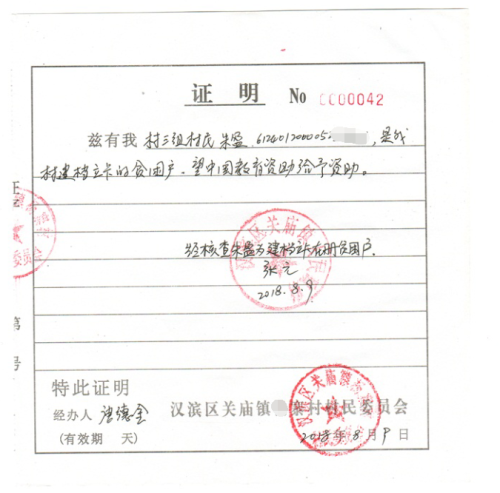 证 明 No 0000042
兹有我 村三组村民 朱盈 612401200005 , 是我
村建档立卡的贫困户、望中国教育资助给予资助。
经核查朱盈为建档卡在册贫困户.
张元
2018.8.9
第
号
特此证明
经办人
(有效期 天)
汉滨区关庙镇 寨村村民委员会
2018年8月9日